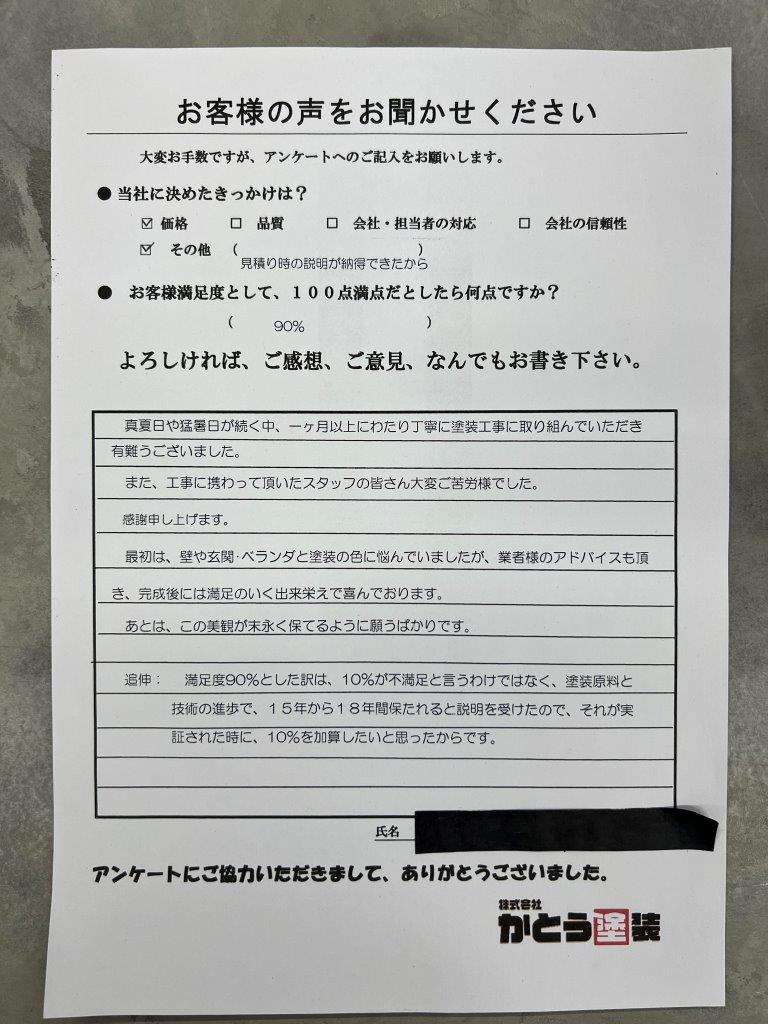 お客様の声をお聞かせください
大変お手数ですが、アンケートへのご記入をお願いします。
● 当社に決めたきっかけは？
☑ 価格 □ 品質 □ 会社・担当者の対応 □ 会社の信頼性
☑ その他 （ ）
見積り時の説明が納得できたから
● お客様満足度として、１００点満点だとしたら何点ですか？
（ 90% ）
よろしければ、ご感想、ご意見、なんでもお書き下さい。
真夏日や猛暑日が続く中、一ヶ月以上にわたり丁寧に塗装工事に取り組んでいただき
有難うございました。
また、工事に携わって頂いたスタッフの皆さん大変ご苦労様でした。
感謝申し上げます。
最初は、壁や玄関・ベランダと塗装の色に悩んでいましたが、業者様のアドバイスも頂
き、完成後には満足のいく出来栄えで喜んでおります。
あとは、この美観が末永く保てるように願うばかりです。
追伸： 満足度90%とした訳は、10%が不満足と言うわけではなく、塗装原料と
技術の進歩で、１５年から１８年間保たれると説明を受けたので、それが実
証された時に、10%を加算したいと思ったからです。
氏名
アンケートにご協力いただきまして、ありがとうございました。
株式会社
かとう塗装